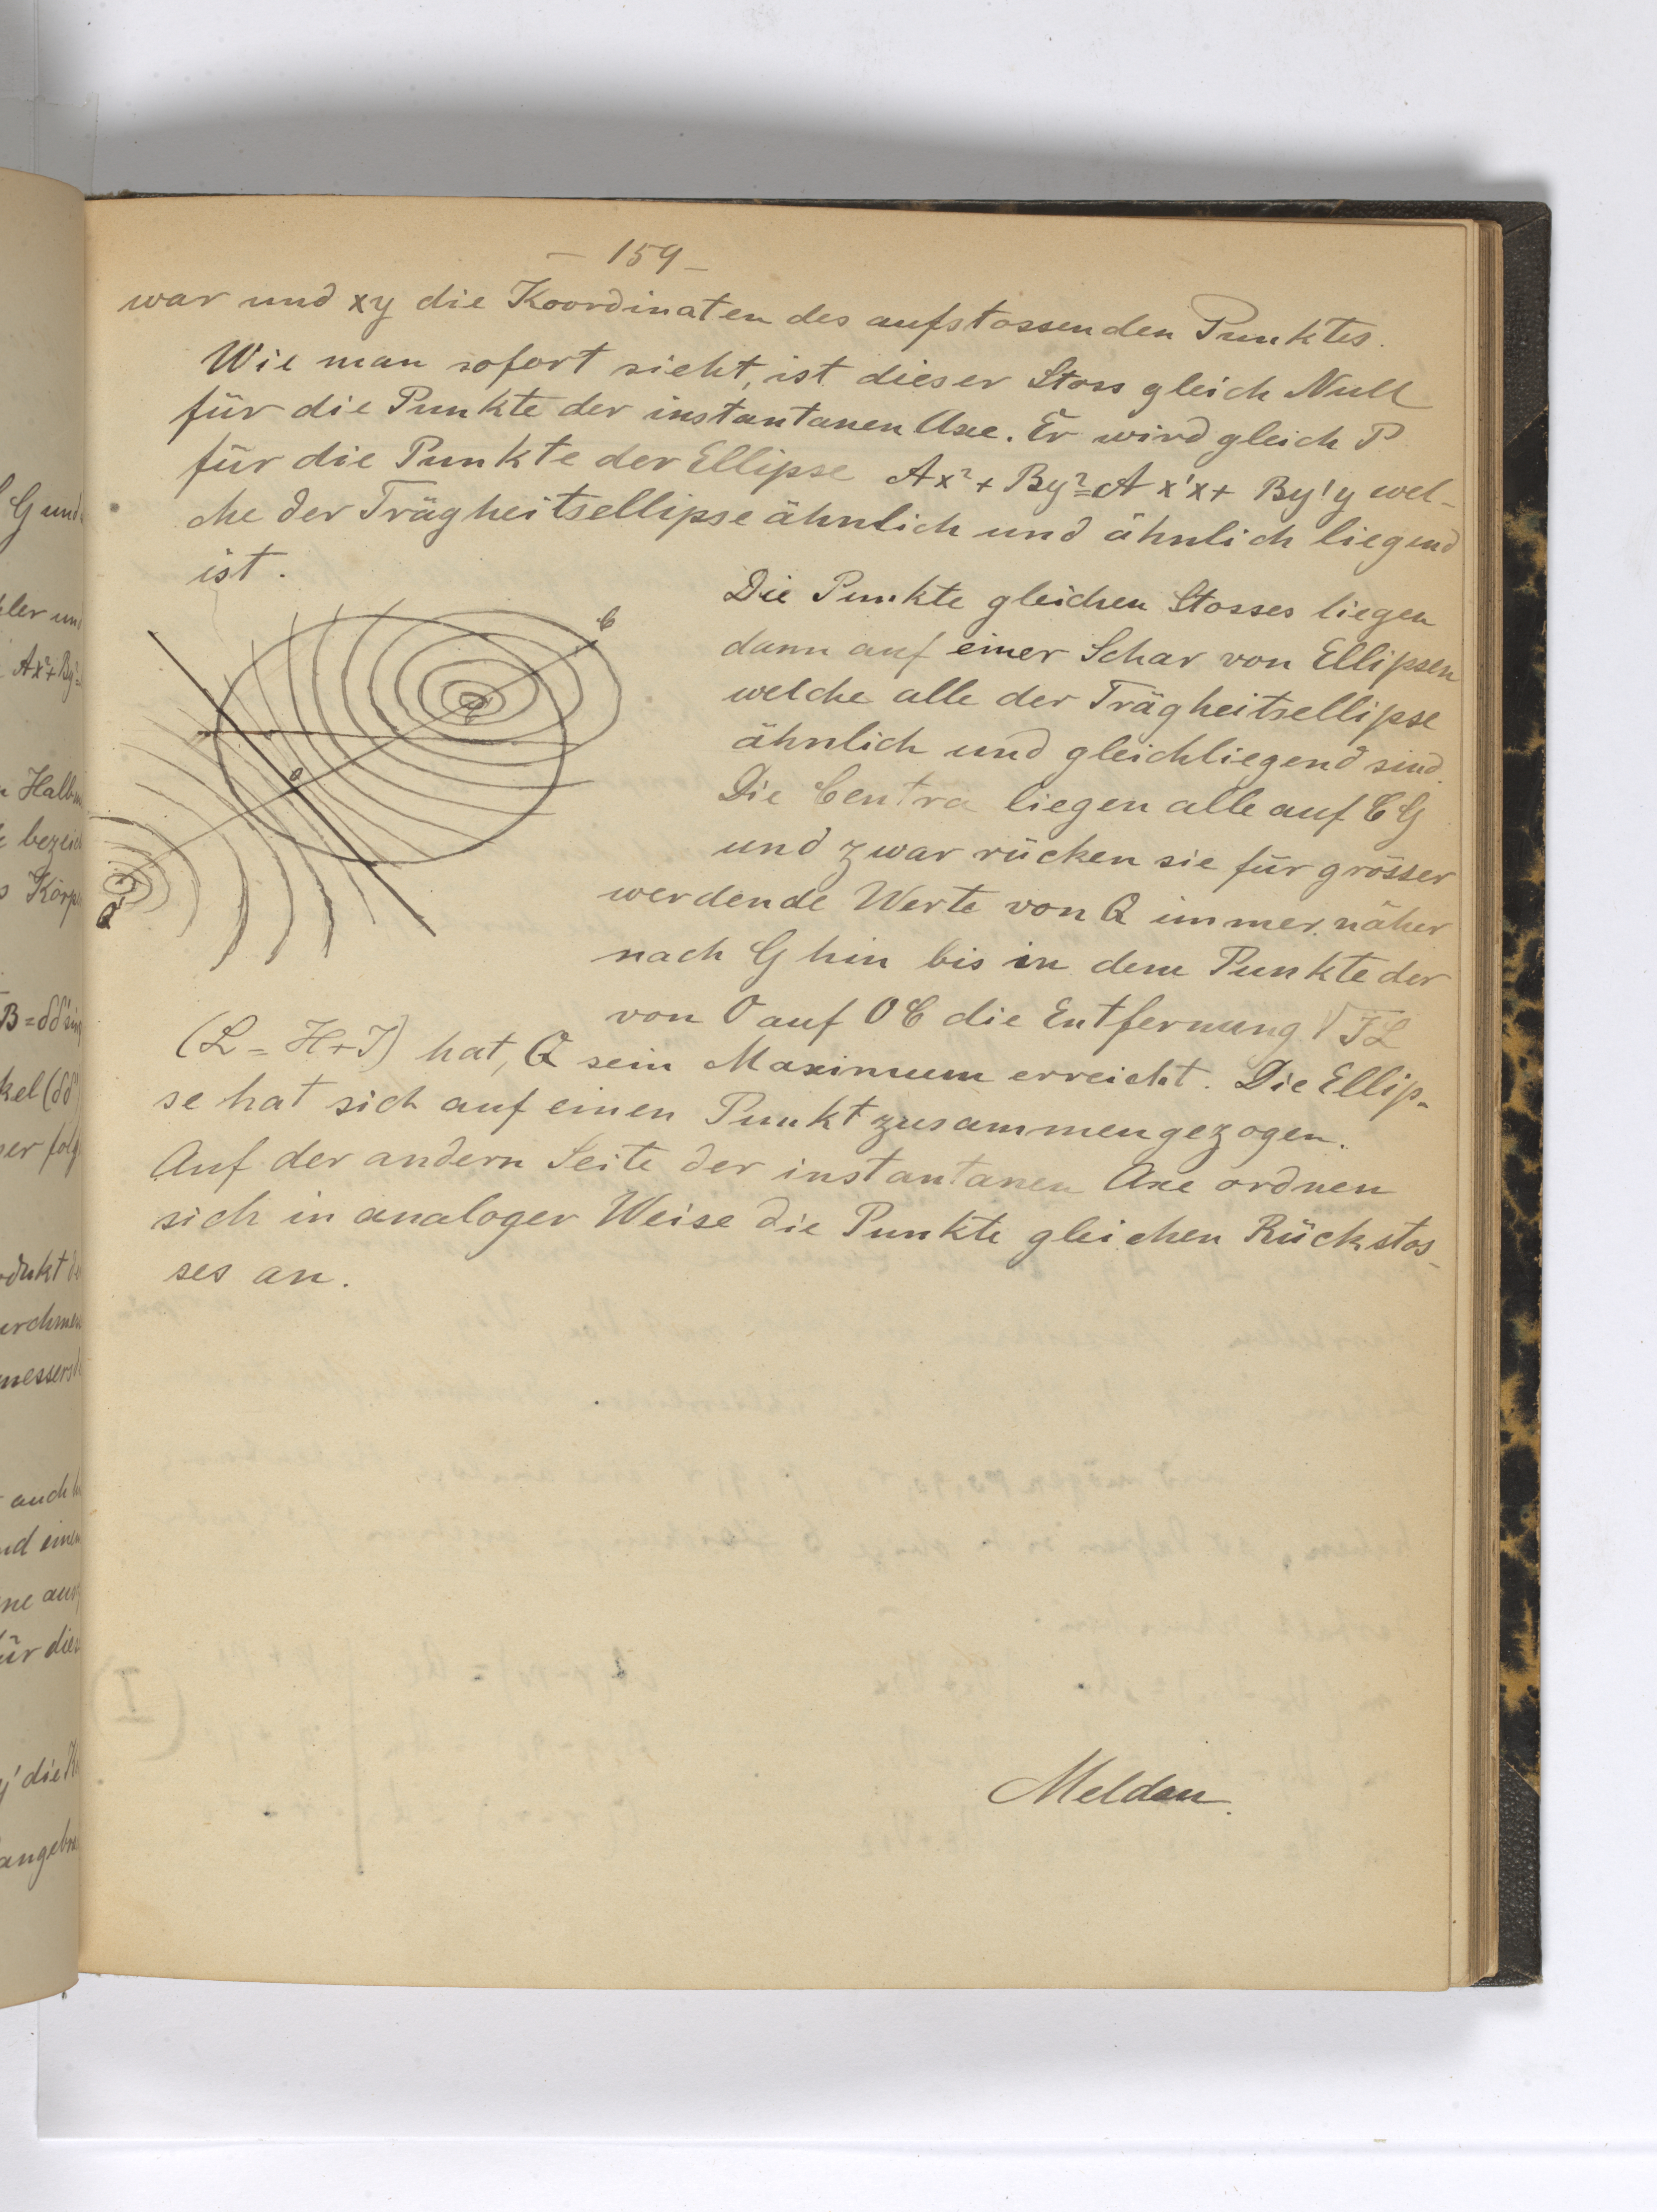 — 159 —
war und xy die Koordinaten des aufstossenden Punktes.
Wie man sofort sieht, ist dieser Stoss gleich Null
für die Punkte der instantanen Axe. Er wird gleich P
für die Punkte der Ellipse Ax² + By² = Ax'x + By'y wel-
che der Trägheitsellipse ähnlich und ähnlich liegend
ist.
Die Punkte gleichen Stosses liegen
dann auf einer Schar von Ellipsen
welche alle der Trägheitsellipse
ähnlich und gleichliegend sind.
Die Centra liegen alle auf CG
und zwar rücken sie für grösser
werdende Werte von Q immer näher
nach G hin bis in dem Punkte der
von O auf OC die Entfernung √IL
(L = H+I) hat, Q sein Maximum erreicht. Die Ellip-
se hat sich auf einen Punkt zusammengezogen.
Auf der andern Seite der instantanen Axe ordnen
sich in analoger Weise die Punkte gleichen Rückstos-
ses an.
Meldau.
C
O
Q'
G und
Ax² + By² =
B = δδ' sin
kel (δδ'
auch
für die
y' die